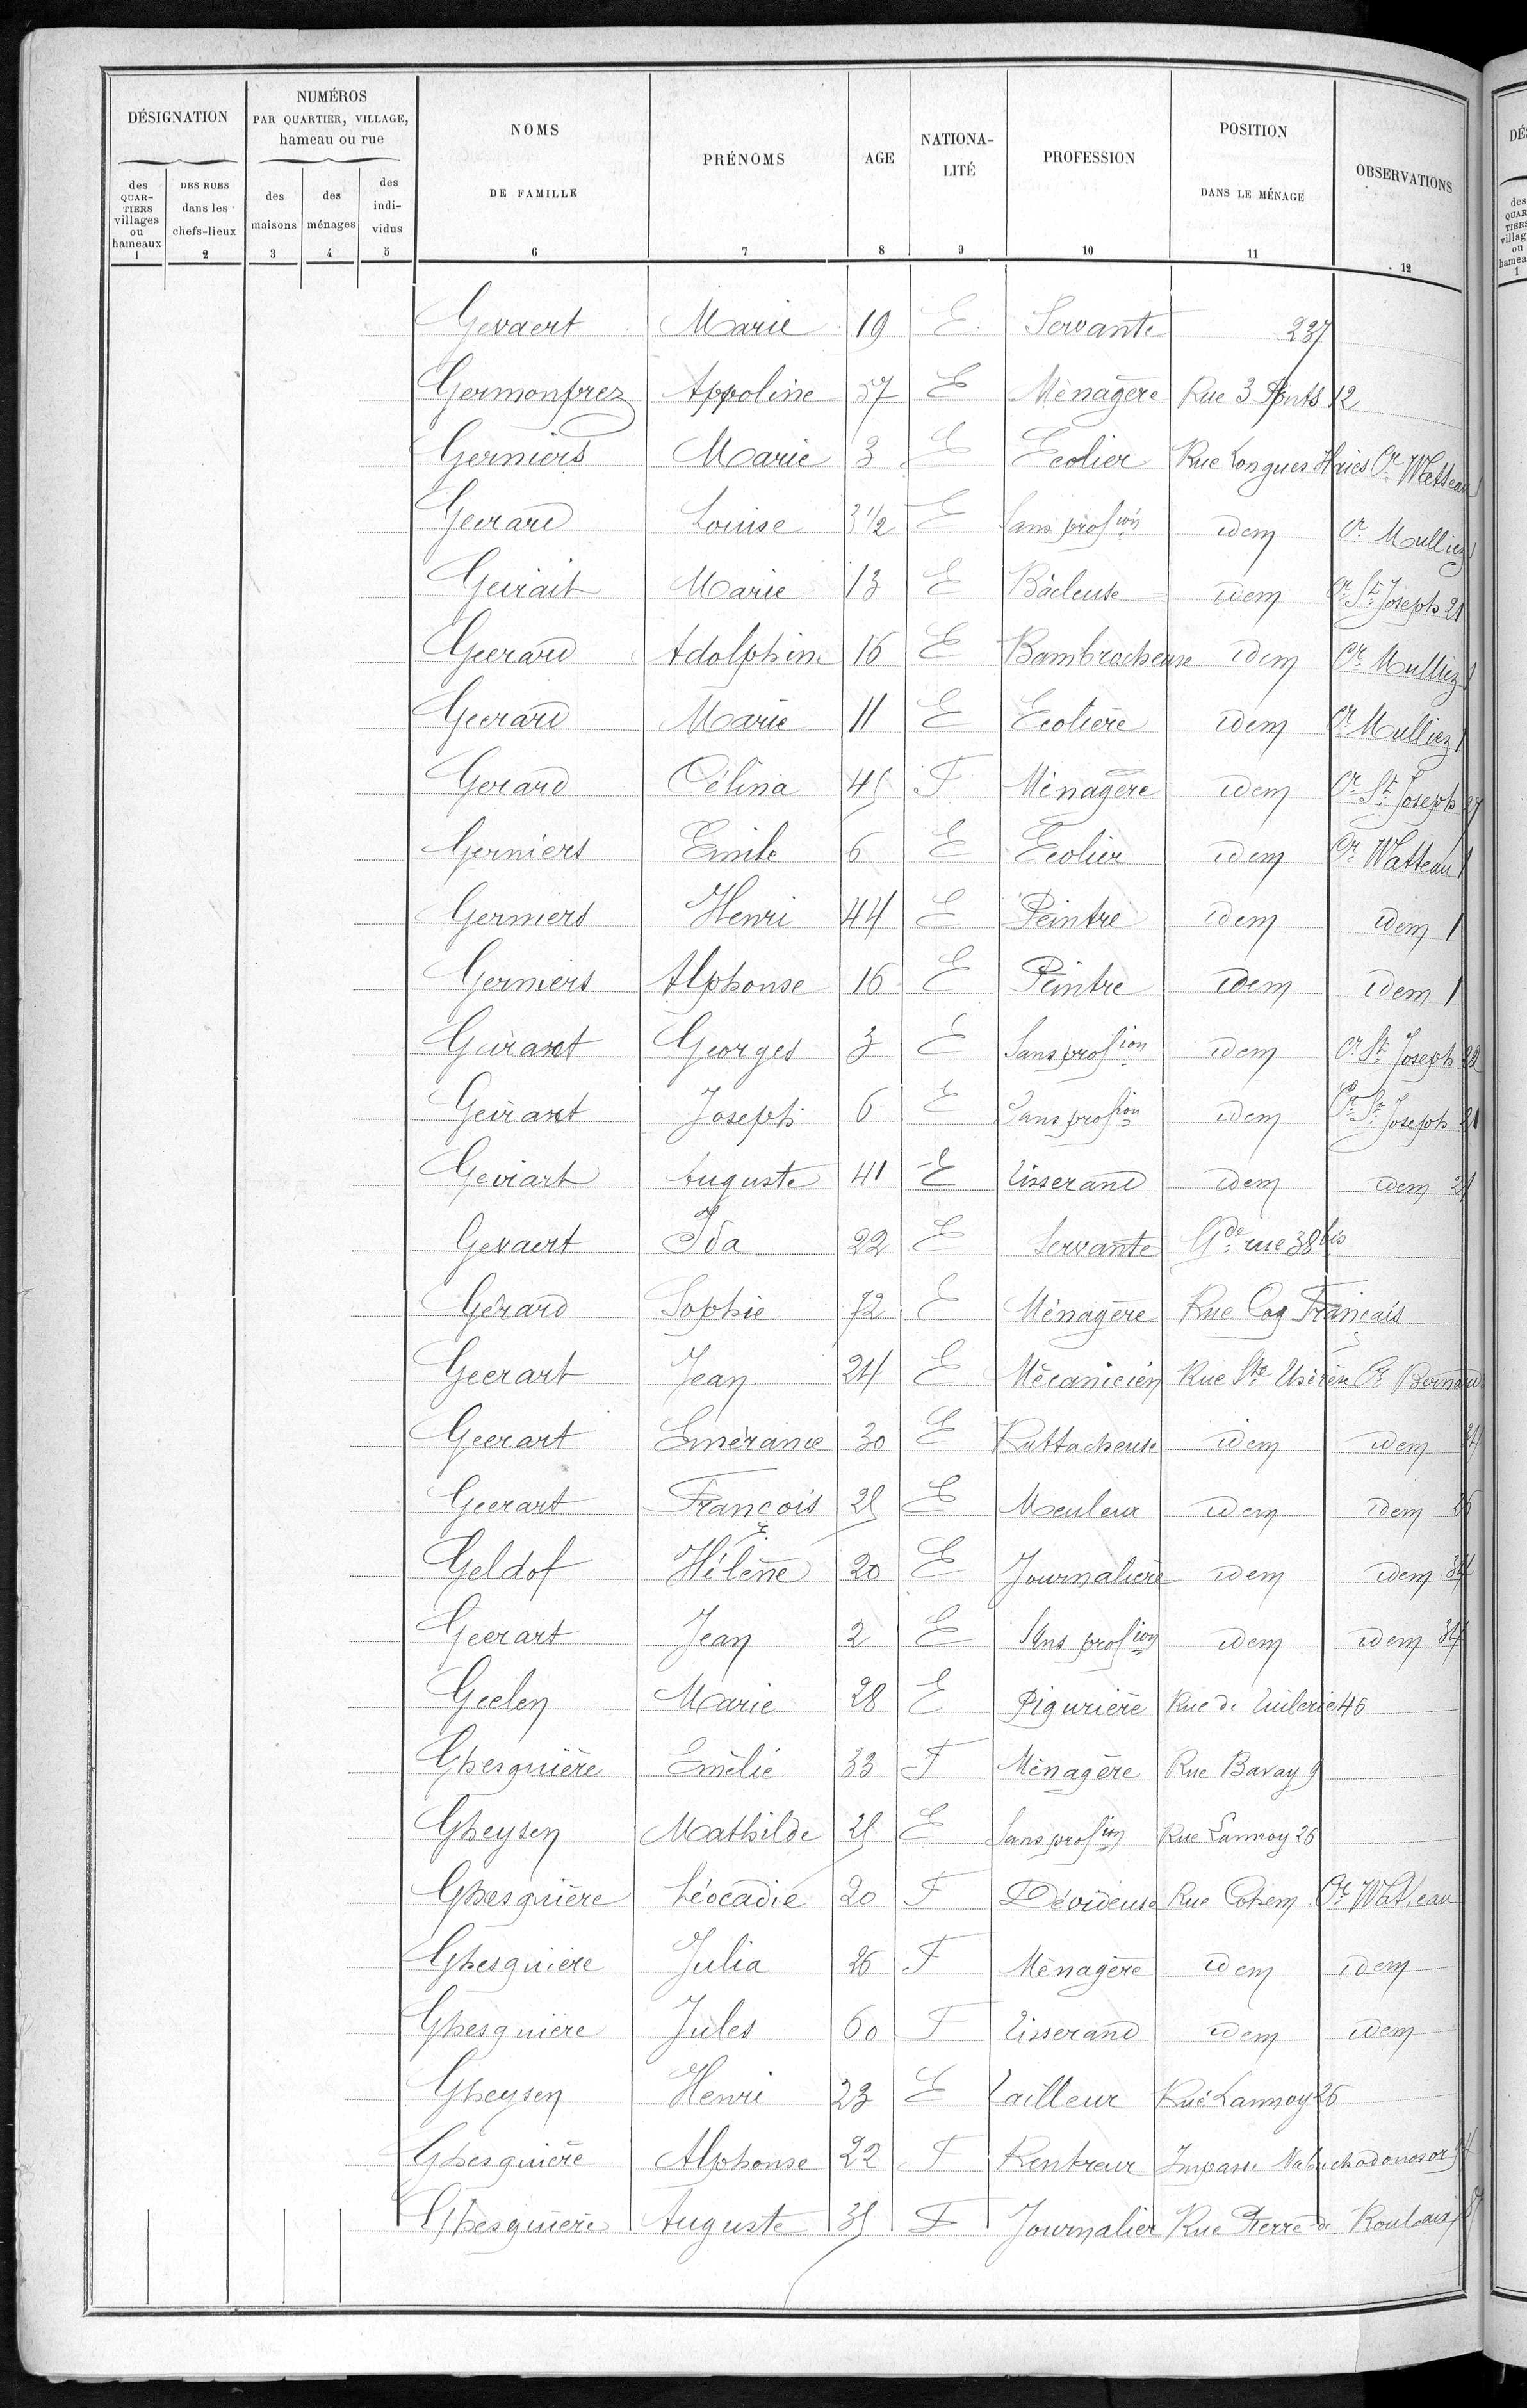 DÉSIGNATION
NUMÉROS
PAR QUARTIER, VILLAGE,
hameau ou rue
NOMS
DE FAMILLE
PRÉNOMS
AGE
NATIONA-
LITÉ
PROFESSION
POSITION
DANS LE MÉNAGE
OBSERVATIONS
des
QUAR-
TIERS
villages
ou
hameaux
DES RUES
dans les
chefs-lieux
des
maisons
des
ménages
des
indi-
vidus
1 2 3 4 5 6 7 8 9 10 11 12
Gevaert Marie 19 E Servante 237
Germonprez Appoline 57 E Ménagère Rue 3 Ponts 12
Gerniers Marie 3 E Ecolier Rue Longues Haies Cr Watteau 1
Geerard Louise 3 1/2 E Sans profion idem Cr Mulliez 1
Geirait Marie 13 E Bâcleuse idem Cr St Joseph 21
Geerard Adolphine 16 E Bambrocheuse idem Cr Mulliez 1
Geerard Marie 11 E Ecolière idem Cr Mulliez 1
Gerard Célina 45 F Ménagère idem Cr St Joseph 27
Gerniers Emile 6 E Ecolier idem Cr Watteau 1
Gerniers Henri 44 E Peintre idem idem 1
Gerniers Alphonse 16 E Peintre idem idem 1
Georges 3 E Sans profion idem Cr St Joseph 22
Joseph 6 E Sans profion idem Cr St Joseph 21
Geirart Auguste 41 E Tisserand idem idem 21
Gevaert Ida 22 E Servante Gde rue 38 bis
Gérard Sophie 72 E Ménagère Rue Coq Français
Geerart Jean 24 E Mécanicien Rue Ste Thérèse Cr Bernard
Geerart Emérance 30 E Rattacheuse idem idem 34
Geerart François 25 E Mouleur idem idem 26
Geldof Hélène 20 E Journalière idem idem 34
Geerart Jean 2 E Sans profion idem idem 34
Geelen Marie 28 E Piqurière Rue de Tuilerie 46
Ghesquière Emélie 33 F Ménagère Rue Bavay 9
Gheysen Mathilde 25 E Sans profion Rue Lannoy 26
Ghesquière Léocadie 20 F Dévideuse Rue Cohem Cr Watteau
Ghesquière Julia 26 F Ménagère idem idem
Ghesquière Jules 60 F Tisserand idem idem
Gheysen Henri 23 E Tailleur Rue Lannoy 26
Ghesquière Alphonse 22 F Rentreur Impasse Nabuchodonosor
Ghesquière Auguste 35 F Journalier Rue Pierre de Roubaix